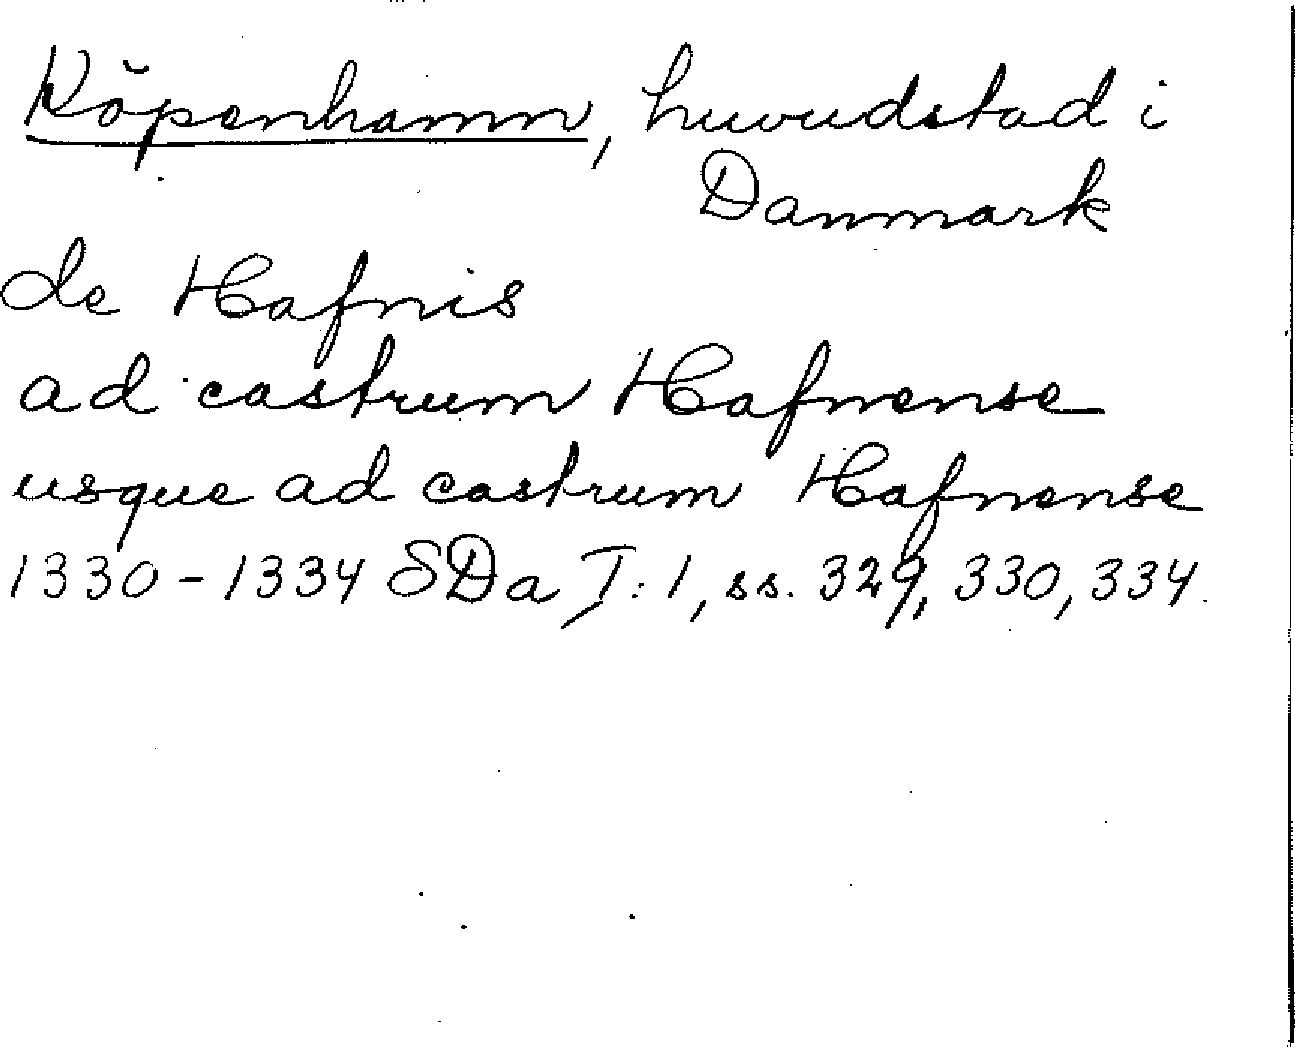 Köpenhamn, huvudstad i
Danmark
de Hafnis
ad castrum Hafnense
usque ad castrum Hafnense
1330-1334 SDa I:1, ss. 329, 330, 334.